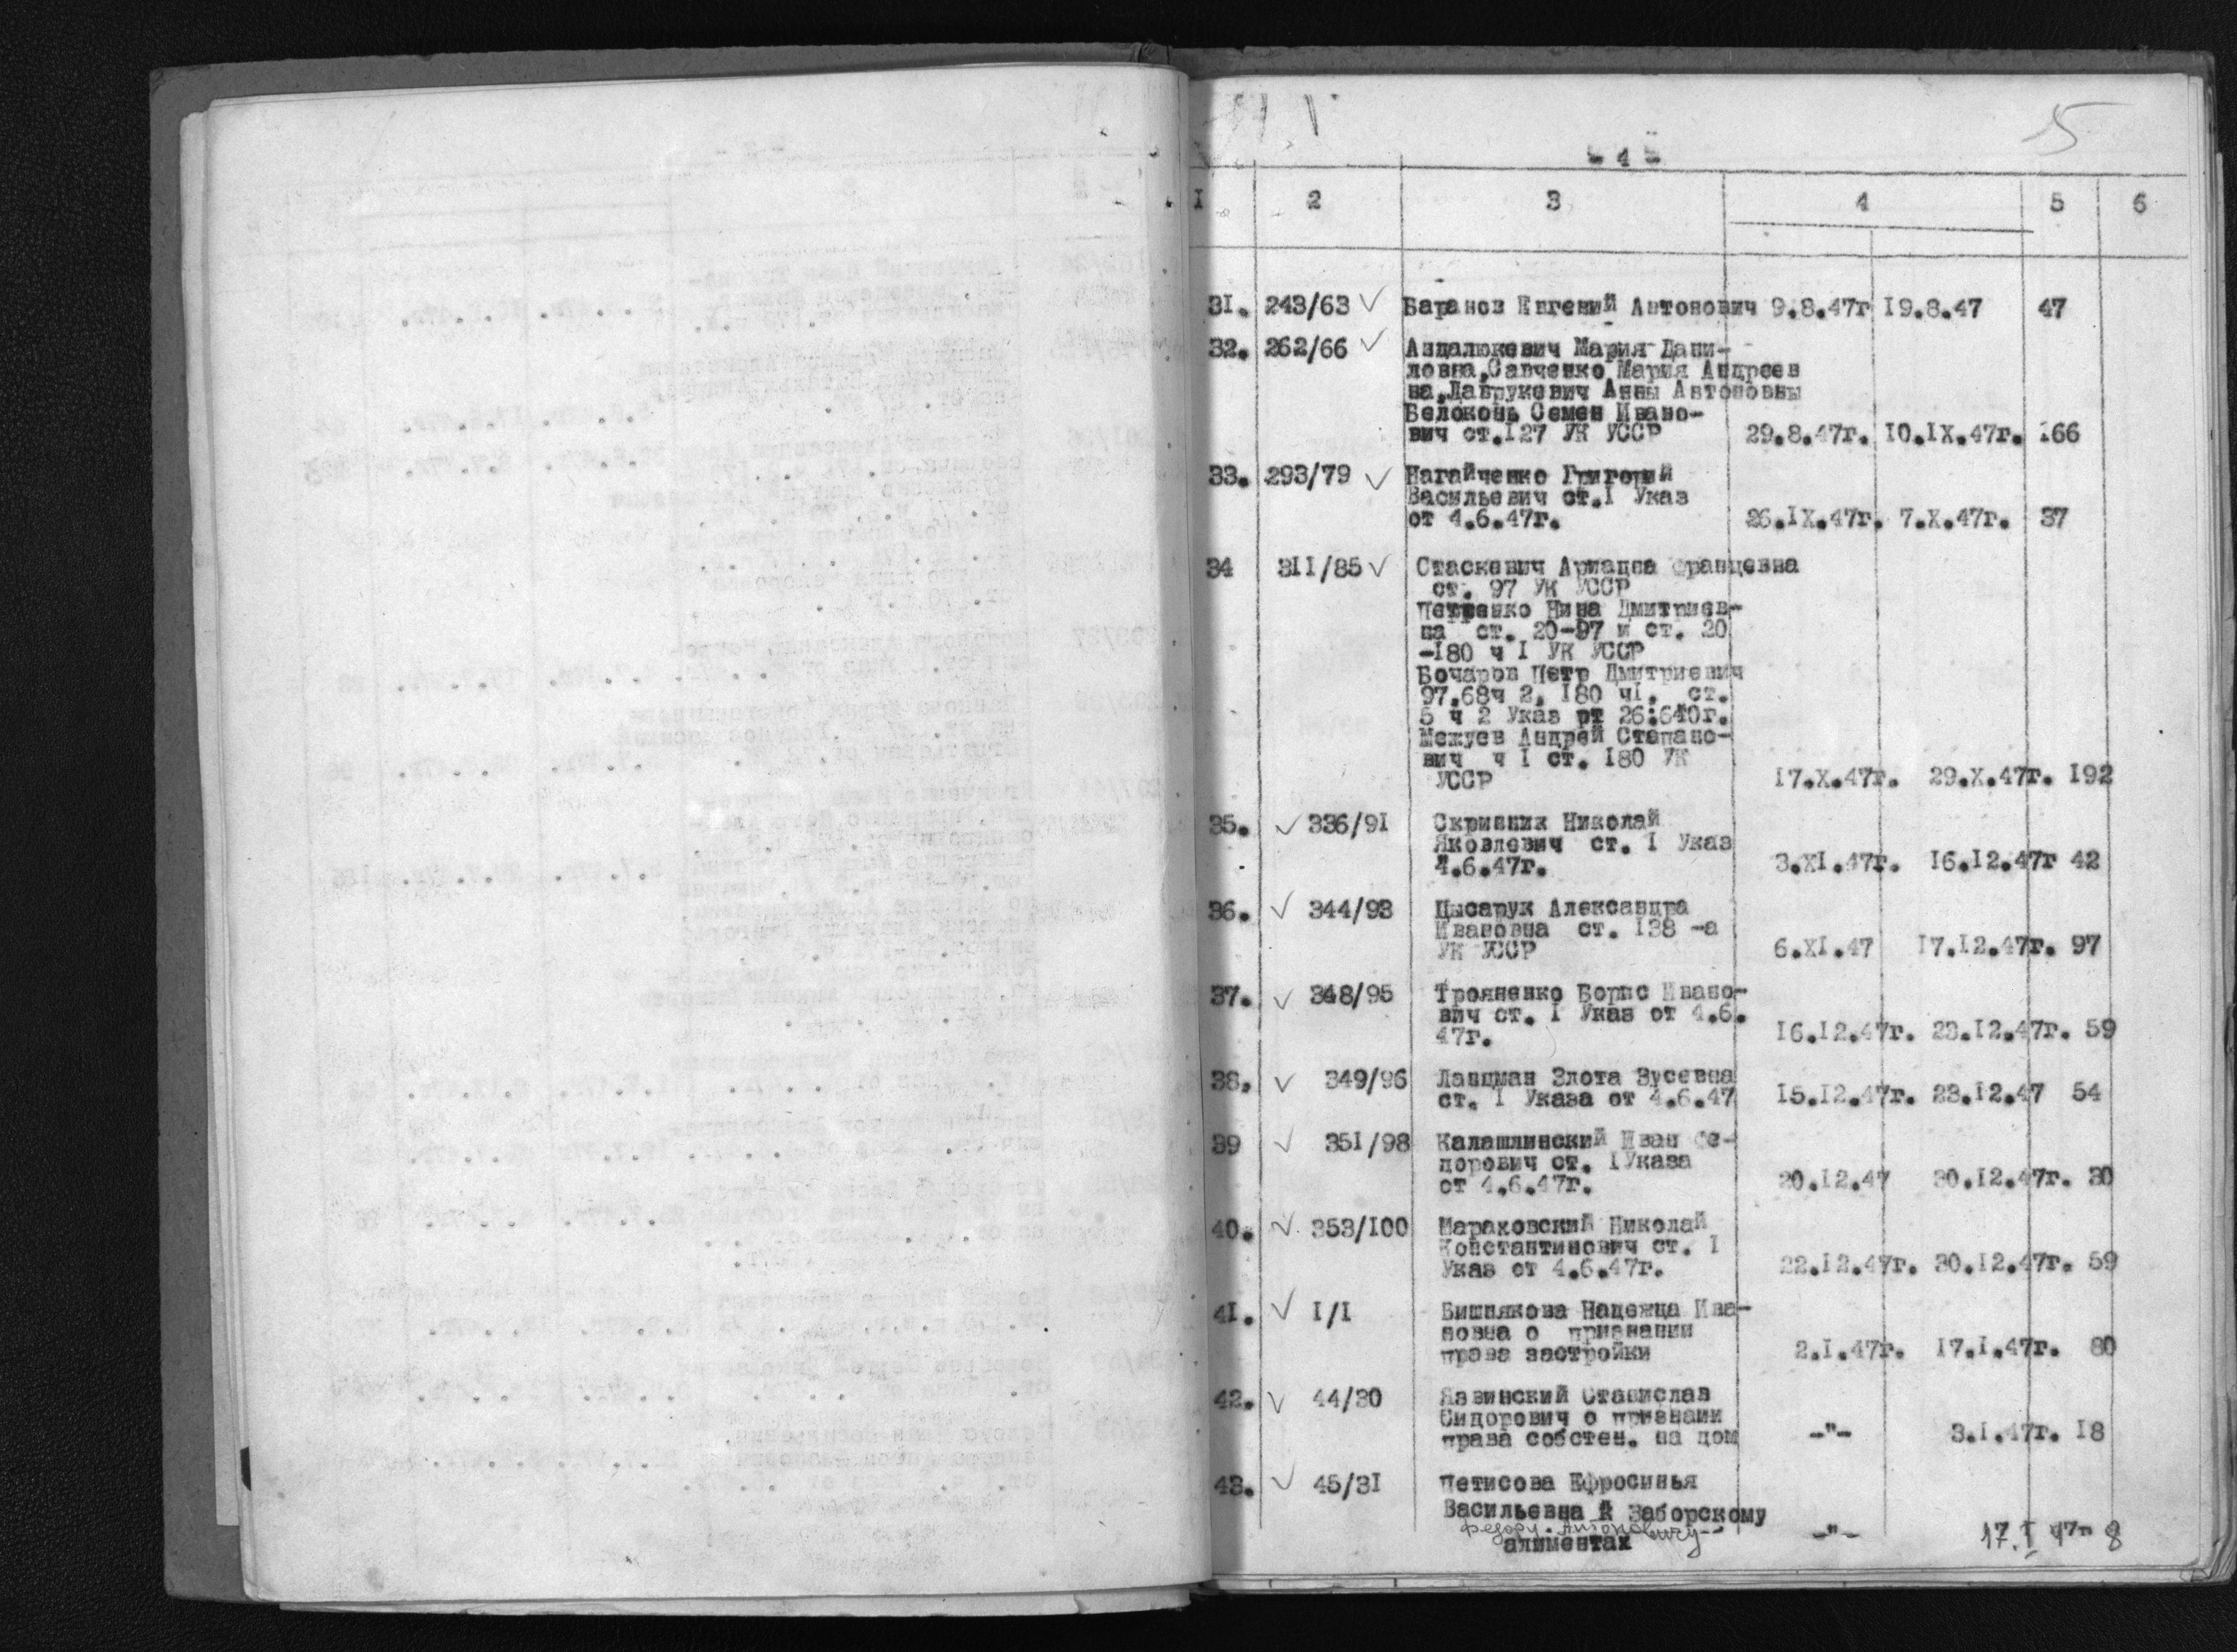 5
- 4 -
I 2 3 4 5 6
31. 243/63 ✓ Баранов Евгений Антонович 9.8.47г 19.8.47 47
32. 262/66 ✓ Андалюкевич Мария Дани-
ловна,Савченко Мария Андреев
на,Лаврукевич Анны Антоновны
Белоконь Семен Ивано-
вич ст.127 УК УССР 29.8.47г. 10.IX.47г. 166
33. 293/79 ✓ Нагайченко Григорий
Васильевич ст.I Указ
от 4.6.47г. 26.IX.47г. 7.X.47г. 37
34 311/85 ✓ Стаскевич Францевна
ст. 97 УК УССР
Петренко Нина Дмитриев-
на ст. 20-97 и ст. 20
-180 ч I УК УССР
Бочаров Петр Дмитриевич
97,68ч 2, 180 чI. ст.
5 ч 2 Указ от 26:640г.
Межуев Андрей Степано-
вич ч I ст. 180 УК
УССР 17.X.47г. 29.X.47г. 192
35. ✓ 336/91 Скривник Николай
Яковлевич ст. I Указ
4.6.47г. 3.XI.47г. 16.12.47г 42
36. ✓ 344/93 Цысарук Александра
Ивановна ст. 138 -а
УК УССР 6.XI.47 17.12.47г. 97
37. ✓ 348/95 Трояненко Борис Ивано-
вич ст. I Указ от 4.6.
47г. 16.12.47г. 23.12.47г. 59
38. ✓ 349/96 Ланцман Злота Зусевна
ст. I Указа от 4.6.47 15.12.47г. 23.12.47 54
39 ✓ 351/98 Калашлинский Иван Фе-
дорович ст. IУказа
от 4.6.47г. 20.12.47 30.12.47г. 30
40. ✓ 353/100 Мараховский Николай
Константинович ст. I
Указ от 4.6.47г. 22.12.47г. 30.12.47г. 59
41. ✓ I/I Бишлякова Надежда Ива-
новна о признании
права застройки 2.I.47г. 17.I.47г. 80
42. ✓ 44/30 Язвинский Станислав
Сидорович о признами
права собствен. на дом -"- 3.I.47г. 18
43. ✓ 45/31 Петисова Ефросинья
Васильевна к Заборскому
Федору Антоновичу-
алиментах -"- 17.I 47г 8